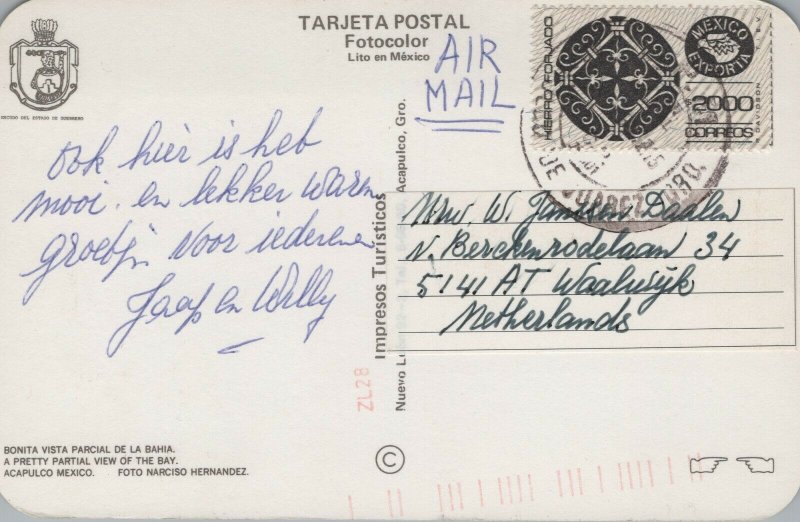 TARJETA POSTAL
Fotocolor
Lito en México
ESCUDO DEL ESTADO DE GUERRERO
AIR
MAIL
HIERRO FORJADO
MEXICO
EXPORTA
$2000
CORREOS
DAVIDSON
JUAREZ, GRO.
ook hier is heb
mooi. en lekker warm
groetjn voor iedereen
Jaap en Willy
Mvw. W. Janssen Daalen
v. Berckenrodelaan 34
5141 AT Waalwijk
Netherlands
Impresos Turísticos
Nuevo Acapulco, Gro.
ZL28
BONITA VISTA PARCIAL DE LA BAHIA.
A PRETTY PARTIAL VIEW OF THE BAY.
ACAPULCO MEXICO. FOTO NARCISO HERNANDEZ.
©